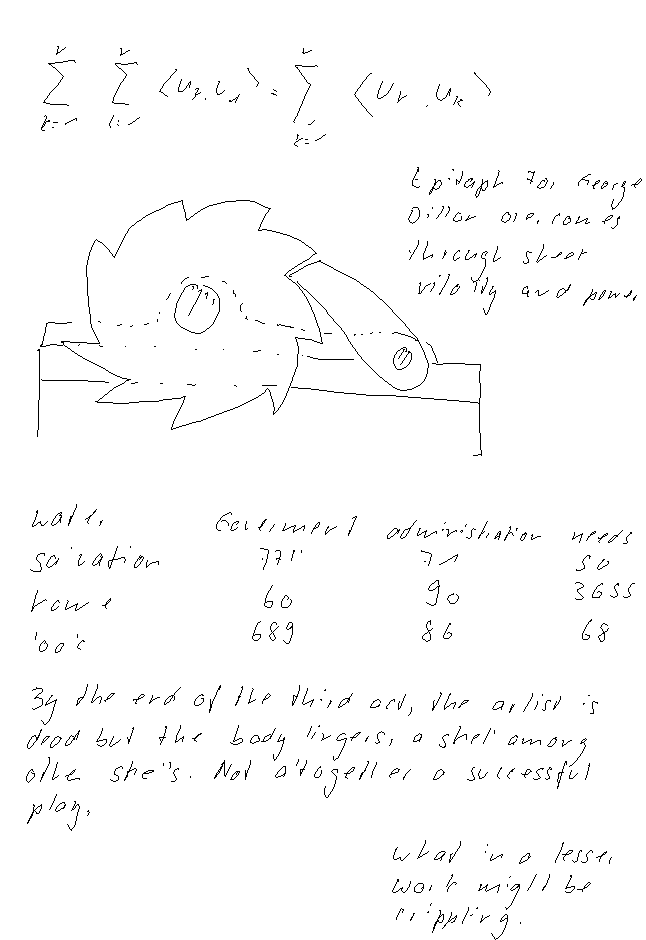 Epitaph for George
Dillon overcomes
through sheer
vitality and power
water Government administration needs
71 50
60 90 3655
689 86 68
By the end of the third act, the artist is
dead but the body lingers, a shell among
other shells. Not altogether a successful
play.
what in a lesser
work might be
crippling.